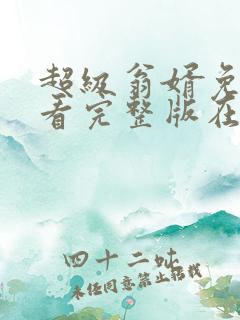 超级翁婿免
看完整版在
四十二吆
未经同意禁止转载